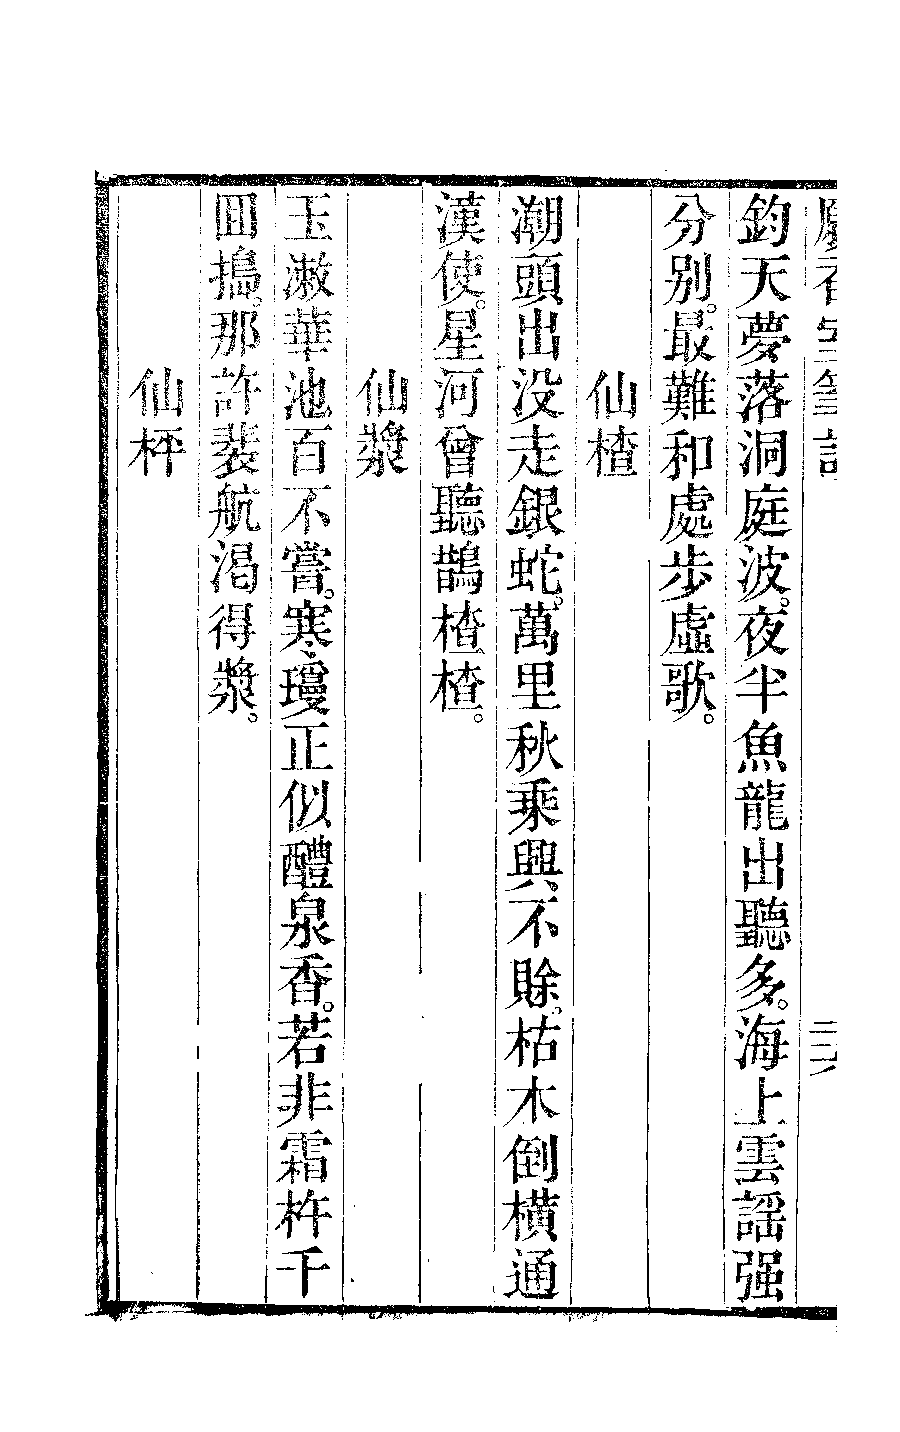 鈞天夢落洞庭波。夜半魚龍出聽多。海上雲謡强
分别。最難和處步虛歌。
仙楂
潮頭出没走銀蛇。萬里秋乘興不賖。枯木倒橫通
漢使。星河曾聽鵲楂楂。
仙漿
玉潄華池百不嘗。寒瓊正似醴泉香。若非霜杵千
回搗。那許裴航渴得漿。
仙枰